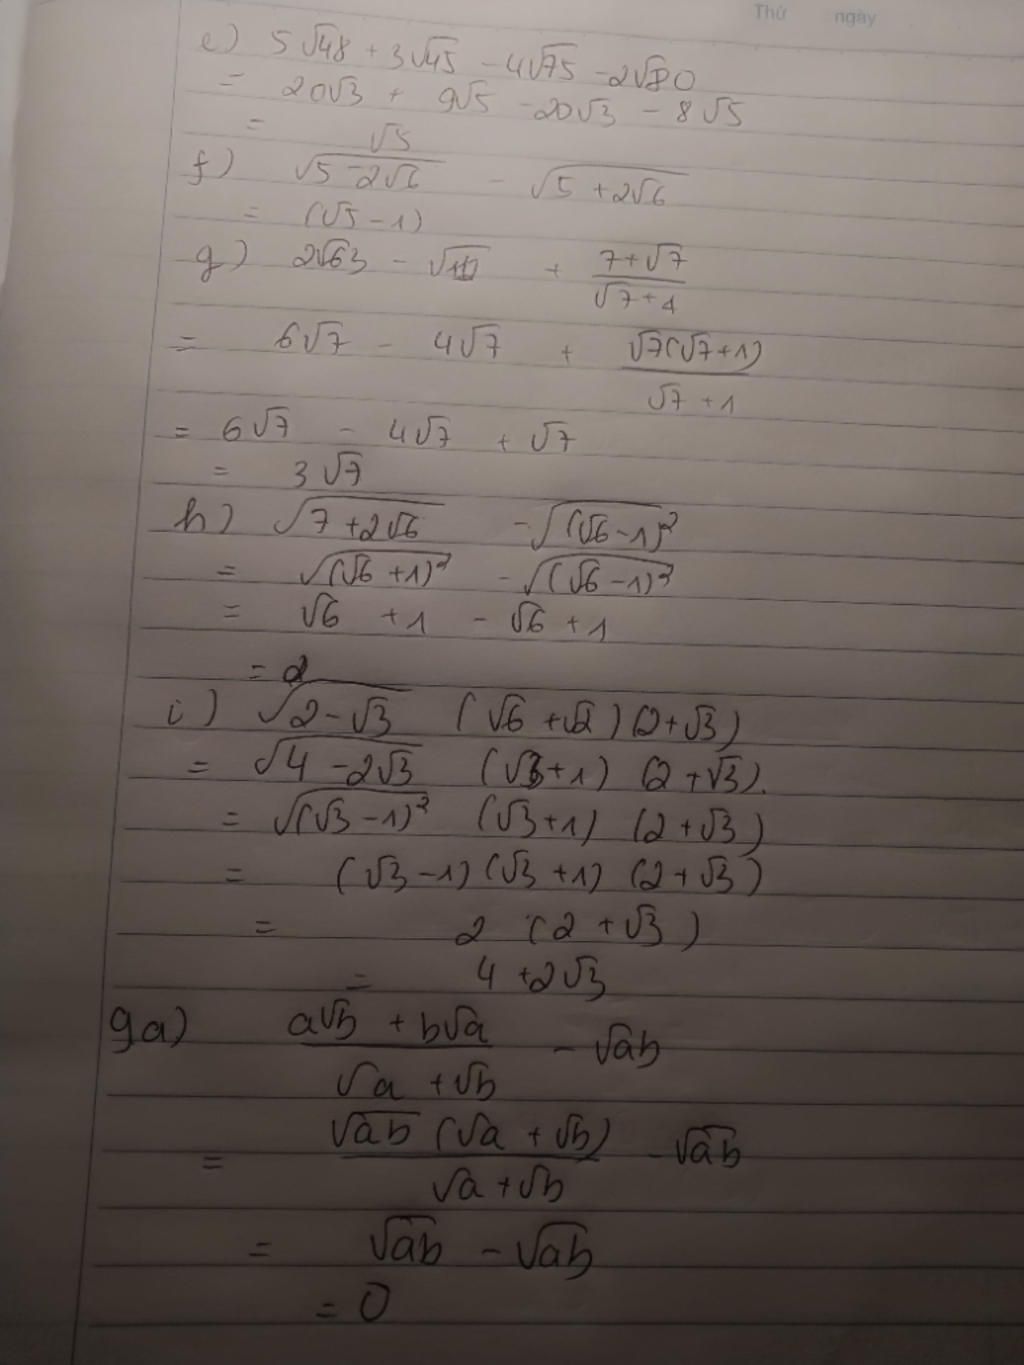 Thứ ngày
e) 5√48 + 3√45 - 4√75 - 2√80
= 20√3 + 9√5 - 20√3 - 8√5
= √5
f) √(5 - 2√6) - √(5 + 2√6)
= (√5 - 1)
g) 2√63 - √112 + (7 + √7)/(√7 + 1)
= 6√7 - 4√7 + √7(√7 + 1)/(√7 + 1)
= 6√7 - 4√7 + √7
= 3√7
h) √(7 + 2√6) - √((√6 - 1)²)
= √((√6 + 1)²) - √((√6 - 1)²)
= √6 + 1 - √6 + 1
= 2
i) √(2 - √3) (√6 + √2) (2 + √3)
= √(4 - 2√3) (√3 + 1) (2 + √3).
= √((√3 - 1)²) (√3 + 1) (2 + √3)
= (√3 - 1) (√3 + 1) (2 + √3)
= 2 (2 + √3)
= 4 + 2√3
9a) (a√b + b√a)/(√a + √b) - √ab
= √ab (√a + √b)/(√a + √b) - √ab
= √ab - √ab
= 0